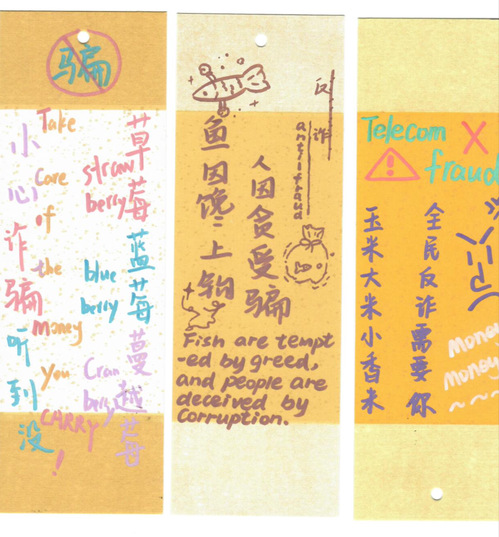 骗
草莓
蓝莓
蔓越莓
straw
berry
blue
berry
Cran
berry
Take
Care
of
the
money
You
CARRY
!
小心
诈骗
听到没
反诈
anti-fraud
人因贪受骗
鱼因馋上钩
Fish are tempt
-ed by greed,
and people are
deceived by
Corruption.
Telecom X
! fraud
全民反诈需要你
玉米大米小香米
money
money
~~~